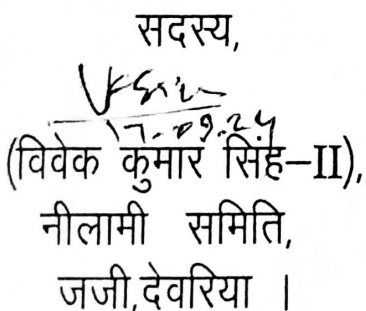 सदस्य,
17.09.24
(विवेक कुमार सिंह–II),
नीलामी समिति,
जजी,देवरिया ।